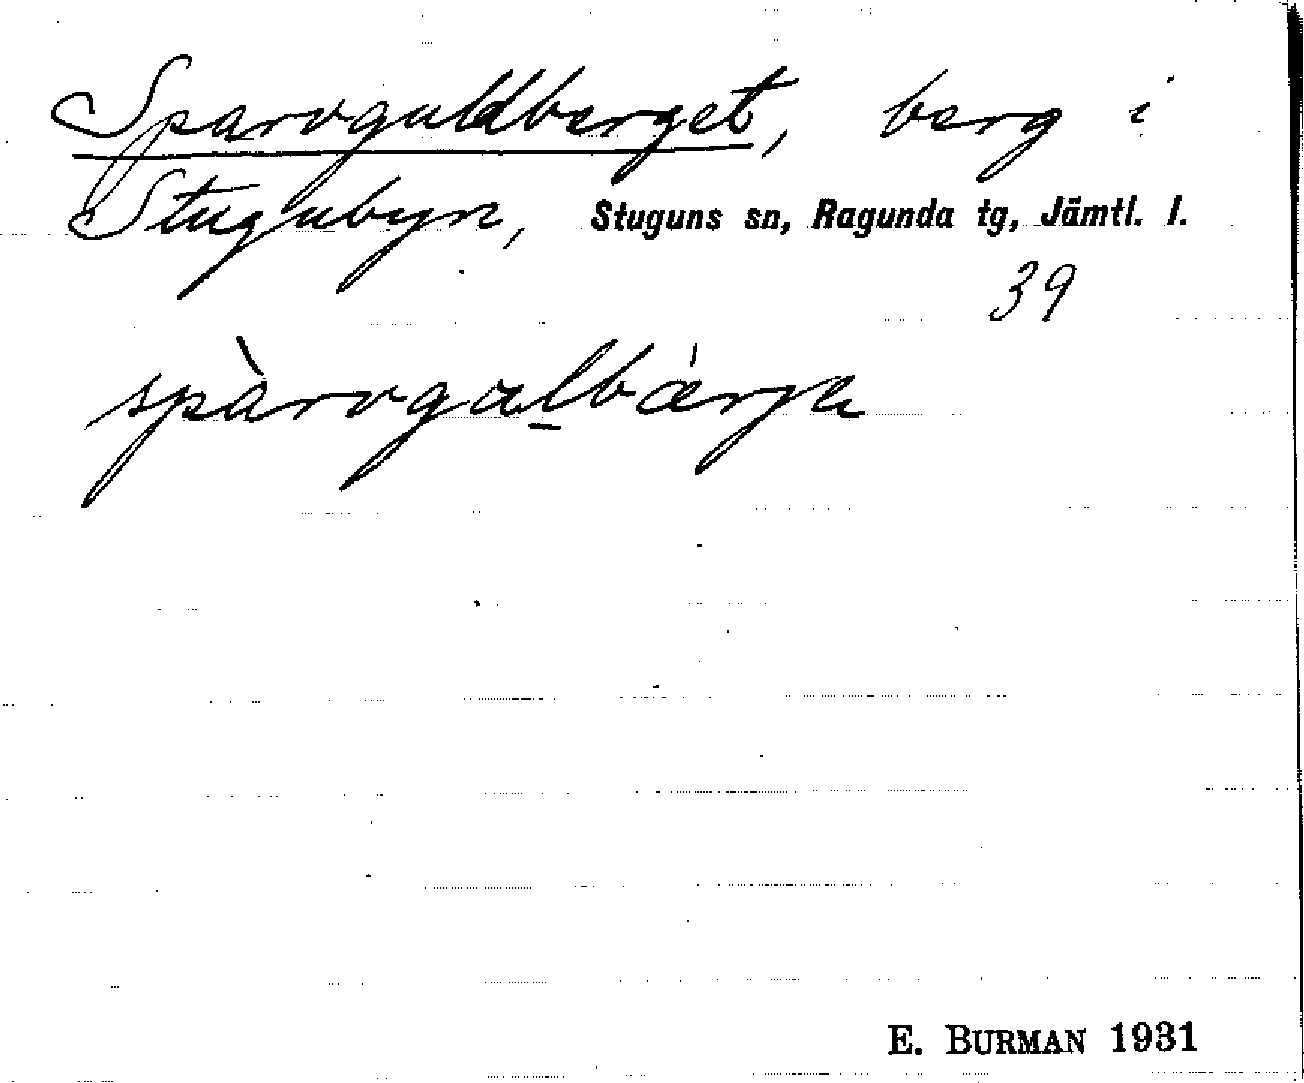 Sparvguldberget, berg i
Stugubyn, Stuguns sn, Ragunda tg, Jämtl. l.
39
spàrvgalbárga
E. BURMAN 1931